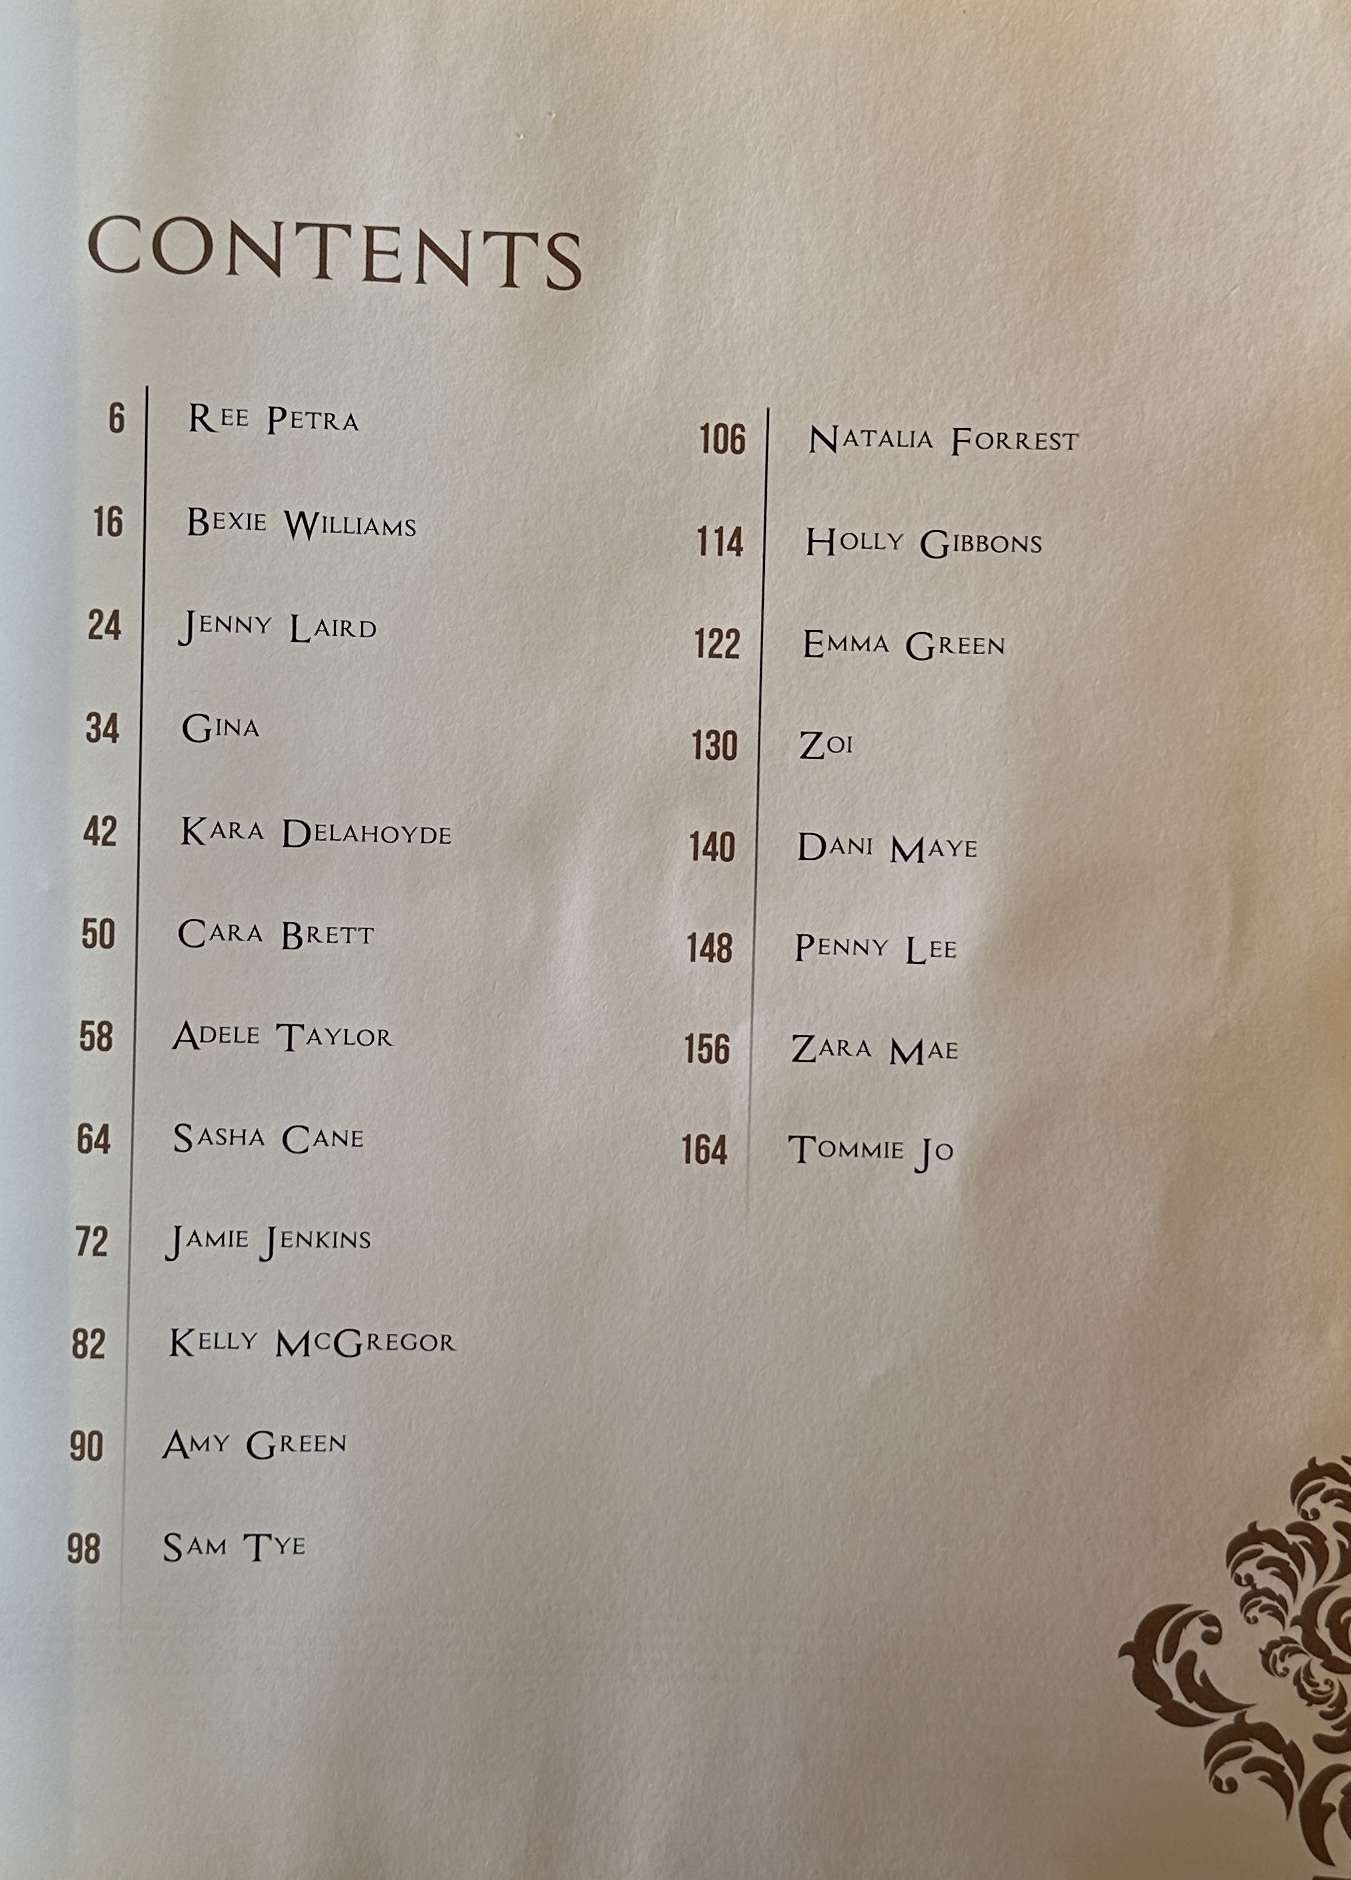 CONTENTS
6 Ree Petra
16 Bexie Williams
24 Jenny Laird
34 Gina
42 Kara Delahoyde
50 Cara Brett
58 Adele Taylor
64 Sasha Cane
72 Jamie Jenkins
82 Kelly McGregor
90 Amy Green
98 Sam Tye
106 Natalia Forrest
114 Holly Gibbons
122 Emma Green
130 Zoi
140 Dani Maye
148 Penny Lee
156 Zara Mae
164 Tommie Jo